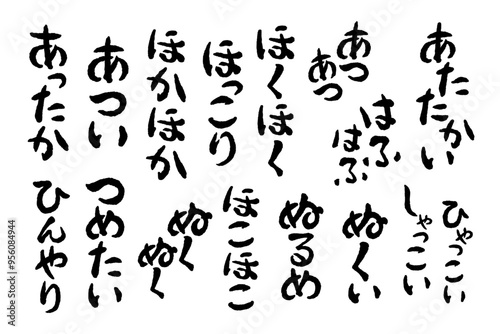 あたたかい
あつ
あつ
はふ
はふ
ほくほく
ほっこり
ほかほか
あつい
あったか
ひゃっこい
しゃっこい
ぬくい
ぬるめ
ほこほこ
ぬく
ぬく
つめたい
ひんやり
Adobe Stock | #956084944